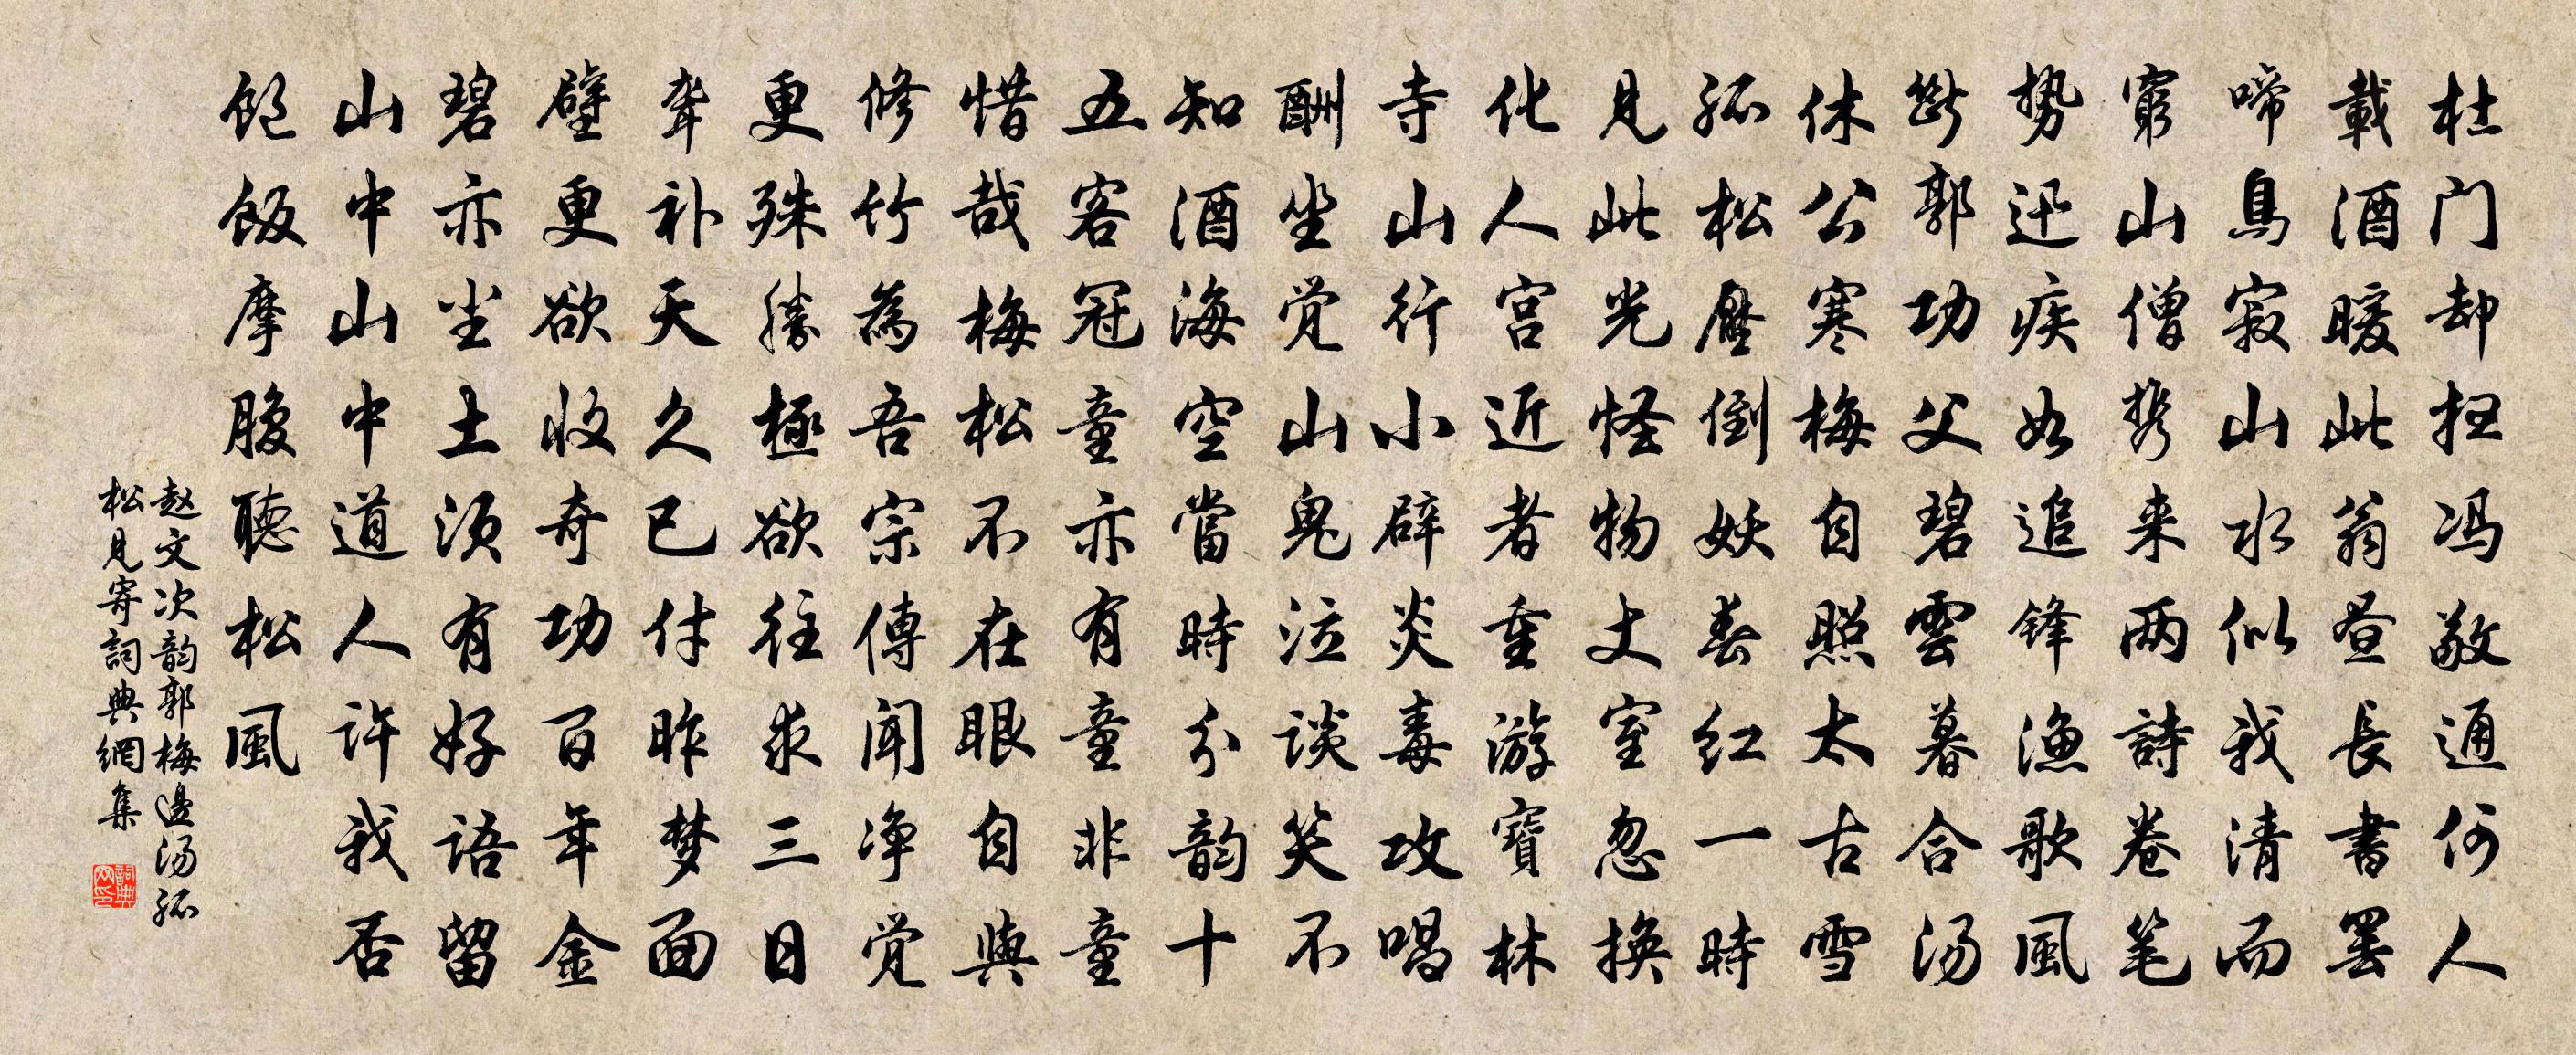 杜门却扫冯敬通何人
載酒暖此翁昼長書罢
啼鳥寂山水似我清而
窮山僧携来两詩卷笔
势迅疾如追锋渔歌風
断郭功父碧雲暮合汤
休公寒梅自照太古雪
孤松壓倒妖春红一時
見此光怪物丈室忽换
化人宫近者重游寶林
寺山行小辟炎毒攻唱
酬坐觉山鬼泣谈笑不
知酒海空當時分韵十
五客冠童亦有童非童
惜哉梅松不在眼自與
修竹為吾宗傳闻净觉
更殊勝極欲往求三日
聋补天久已付昨梦面
壁更欲收奇功百年金
碧亦尘土须有好語留
山中山中道人许我否
饱饭摩腹聽松風
赵文次韵郭梅邊汤孤
松見寄詞典網集
詞典网印